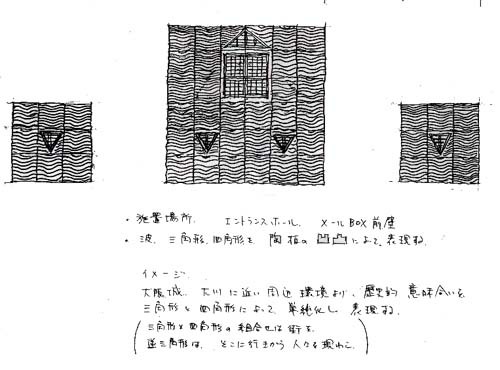 ・施置場所. エントランスホール. メールBOX前壁
・波. 三角形. 四角形を 陶板の凹凸によって、表現ね.
イメージ.
大阪城. 大川に近い周辺環境より、歴史的意味合いを
三角形と四角形によって、単純化し 表現ね.
三角形と四角形の組合せは街を.
逆三角形は、そこに行きかう人々を現わし.